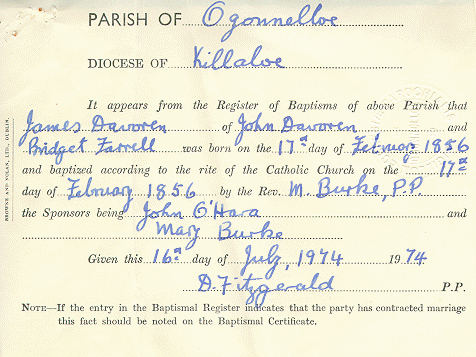 PARISH OF Ogonnelloe
DIOCESE OF Killaloe
It appears from the Register of Baptisms of above Parish that
James Davoren of John Davoren and
Bridget Farrell was born on the 17th day of February 1856
and baptized according to the rite of the Catholic Church on the 17th
day of February 1856 by the Rev. M. Burke, P.P.
the Sponsors being John O'Hara and
Mary Burke
Given this 16th day of July, 1974 1974
D. Fitzgerald P.P.
NOTE—If the entry in the Baptismal Register indicates that the party has contracted marriage
this fact should be noted on the Baptismal Certificate.
BROWNE AND NOLAN, LTD., DUBLIN.